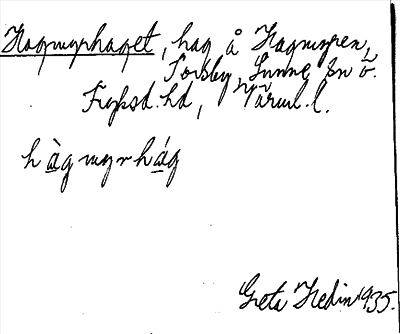 Hagmyrhaget, hag å Hagmyren,
Torsby, Sunne sn ö.
Fryksd. hd, Värml. l.
hàgmyrhág
Greta Hedin 1935.